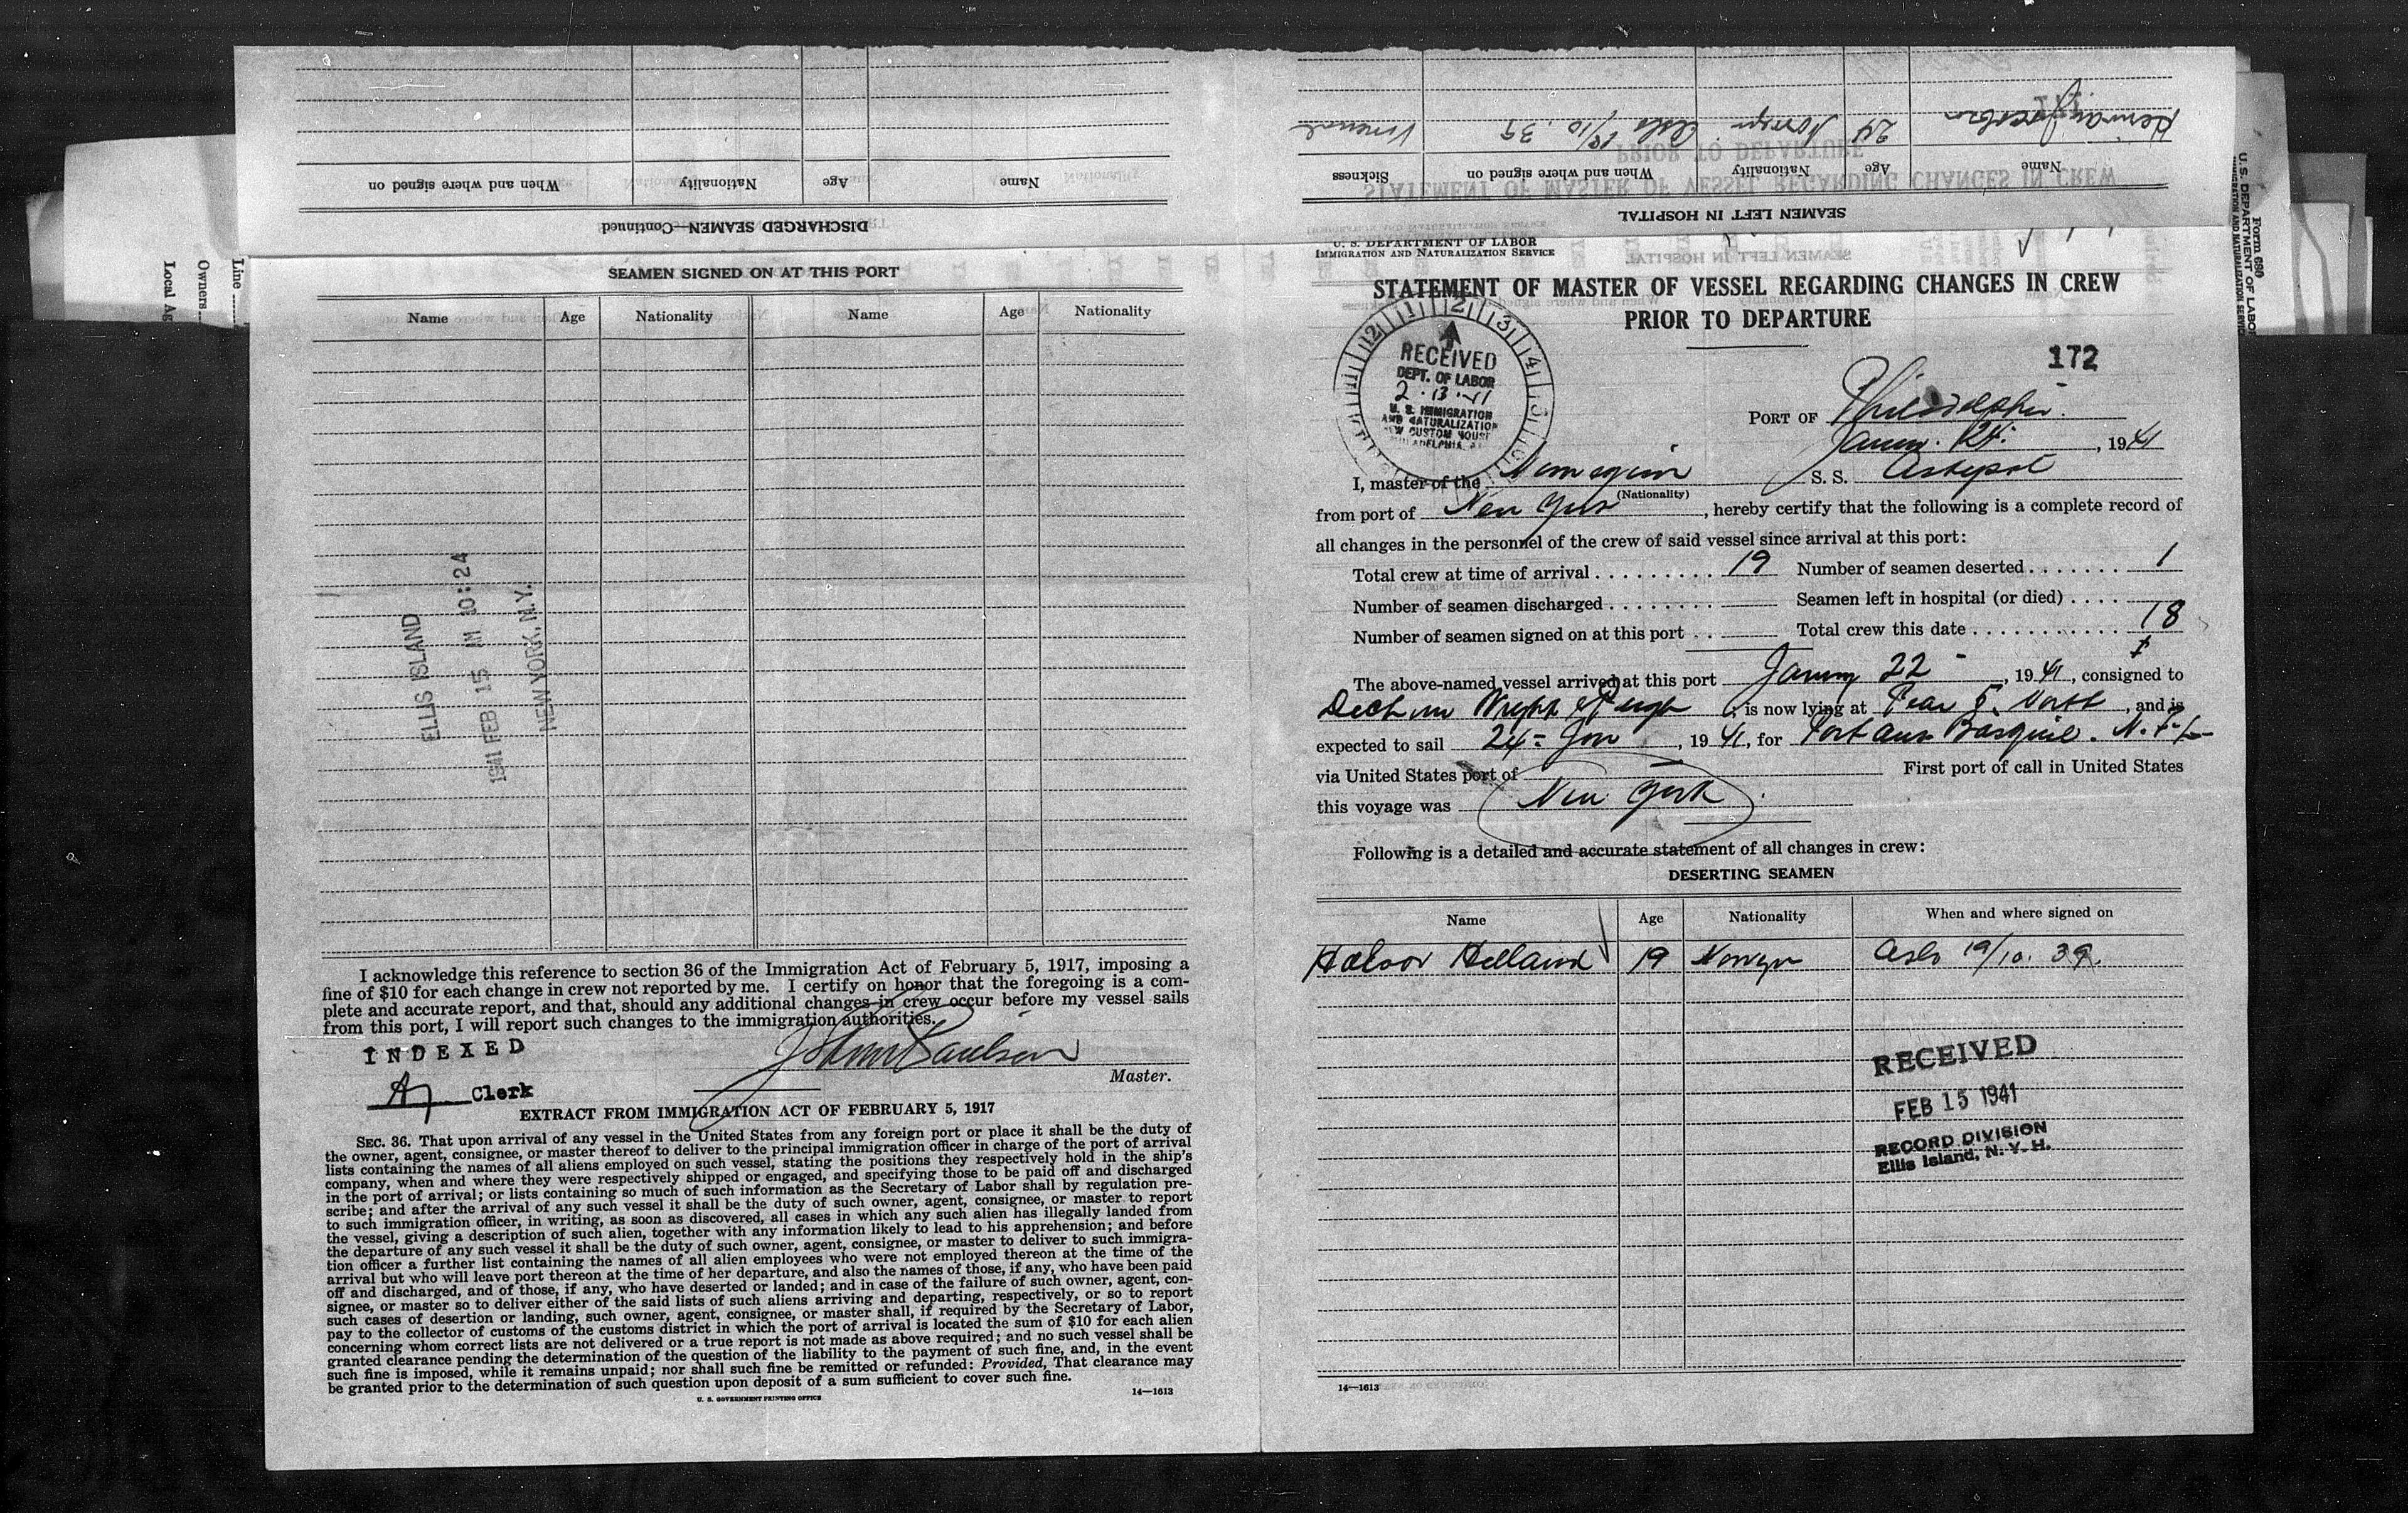 DISCHARGED SEAMEN—Continued
Name Age Nationality When and where signed on
SEAMEN LEFT IN HOSPITAL
Name Age Nationality When and where signed on Sickness
24 Oslo 18/10. 39
Form 680
U.S. DEPARTMENT OF LABOR
IMMIGRATION AND NATURALIZATION SERVICE
Line
Owners
Local Ag
SEAMEN SIGNED ON AT THIS PORT
Name Age Nationality Name Age Nationality
ELLIS ISLAND
1941 FEB 15 AM 10:24
NEW YORK, N.Y.
I acknowledge this reference to section 36 of the Immigration Act of February 5, 1917, imposing a
fine of $10 for each change in crew not reported by me. I certify on honor that the foregoing is a com-
plete and accurate report, and that, should any additional changes in crew occur before my vessel sails
from this port, I will report such changes to the immigration authorities.
INDEXED
Clerk
Master.
EXTRACT FROM IMMIGRATION ACT OF FEBRUARY 5, 1917
SEC. 36. That upon arrival of any vessel in the United States from any foreign port or place it shall be the duty of
the owner, agent, consignee, or master thereof to deliver to the principal immigration officer in charge of the port of arrival
lists containing the names of all aliens employed on such vessel, stating the positions they respectively hold in the ship's
company, when and where they were respectively shipped or engaged, and specifying those to be paid off and discharged
in the port of arrival; or lists containing so much of such information as the Secretary of Labor shall by regulation pre-
scribe; and after the arrival of any such vessel it shall be the duty of such owner, agent, consignee, or master to report
to such immigration officer, in writing, as soon as discovered, all cases in which any such alien has illegally landed from
the vessel, giving a description of such alien, together with any information likely to lead to his apprehension; and before
the departure of any such vessel it shall be the duty of such owner, agent, consignee, or master to deliver to such immigra-
tion officer a further list containing the names of all alien employees who were not employed thereon at the time of the
arrival but who will leave port thereon at the time of her departure, and also the names of those, if any, who have been paid
off and discharged, and of those, if any, who have deserted or landed; and in case of the failure of such owner, agent, con-
signee, or master so to deliver either of the said lists of such aliens arriving and departing, respectively, or so to report
such cases of desertion or landing, such owner, agent, consignee, or master shall, if required by the Secretary of Labor,
pay to the collector of customs of the customs district in which the port of arrival is located the sum of $10 for each alien
concerning whom correct lists are not delivered or a true report is not made as above required; and no such vessel shall be
granted clearance pending the determination of the question of the liability to the payment of such fine, and, in the event
such fine is imposed, while it remains unpaid; nor shall such fine be remitted or refunded: Provided, That clearance may
be granted prior to the determination of such question upon deposit of a sum sufficient to cover such fine.
U. S. GOVERNMENT PRINTING OFFICE 14—1613
U. S. DEPARTMENT OF LABOR
IMMIGRATION AND NATURALIZATION SERVICE
STATEMENT OF MASTER OF VESSEL REGARDING CHANGES IN CREW
PRIOR TO DEPARTURE
172
RECEIVED
DEPT. OF LABOR
2·13·41
U. S. IMMIGRATION
AND NATURALIZATION
NEW CUSTOM HOUSE
PHILADELPHIA
PORT OF Philadelphia
24. , 1941
I, master of the Norwegian S. S. Askepot
(Nationality)
from port of New York , hereby certify that the following is a complete record of
all changes in the personnel of the crew of said vessel since arrival at this port:
Total crew at time of arrival 19 Number of seamen deserted 1
Number of seamen discharged Seamen left in hospital (or died)
Number of seamen signed on at this port Total crew this date 18
The above-named vessel arrived at this port 22 , 1941, consigned to
Wright & Pugh , is now lying at 5. North , and is
expected to sail 24- Jan , 1941, for Port aux Basque. N.F.
via United States port of — First port of call in United States
this voyage was New York
Following is a detailed and accurate statement of all changes in crew:
DESERTING SEAMEN
Name Age Nationality When and where signed on
Halvor Helland 19 Oslo 19/10. 39.
RECEIVED
FEB 15 1941
RECORD DIVISION
Ellis Island, N. Y. H.
14—1613